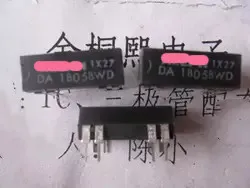 金桐熙电子
1X27
DA 1805BWD
1X27
DA 1805BWD
IC、三极管配
人 陈小